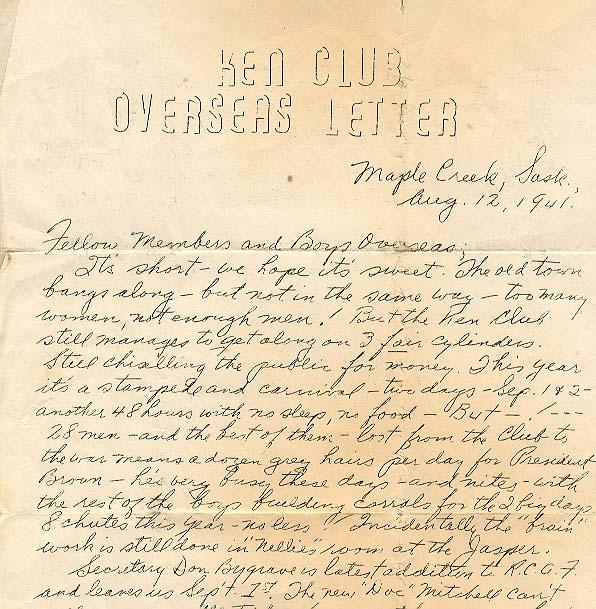 KEN CLUB
OVERSEAS LETTER
Maple Creek, Sask.,
Aug. 12, 1941.
Fellow Members and Boys Overseas;
It's short - we hope it's sweet. The old town
bangs along - but not in the same way - too many
women, not enough men! But the Ken Club
still manages to get along on 3 fair cylinders.
Still chiselling the public for money. This year
it's a stampede and carnival - two days - Sep. 1 & 2 -
another 48 hours with no sleep, no food - But - ! ---
28 men - and the best of them - lost from the Club to
the war means a dozen grey hairs per day for President
Brown - he's very busy these days - and nites - with
the rest of the boys building corrals for the 2 big days.
8 chutes this year - no less! Incidentally the "brain"
work is still done in "Nellie's" room at the Jasper.
Secretary Don Bygrave is latest addition to R.C.A.F.
and leaves us Sept. 1st. The new "Doc" Mitchell can't